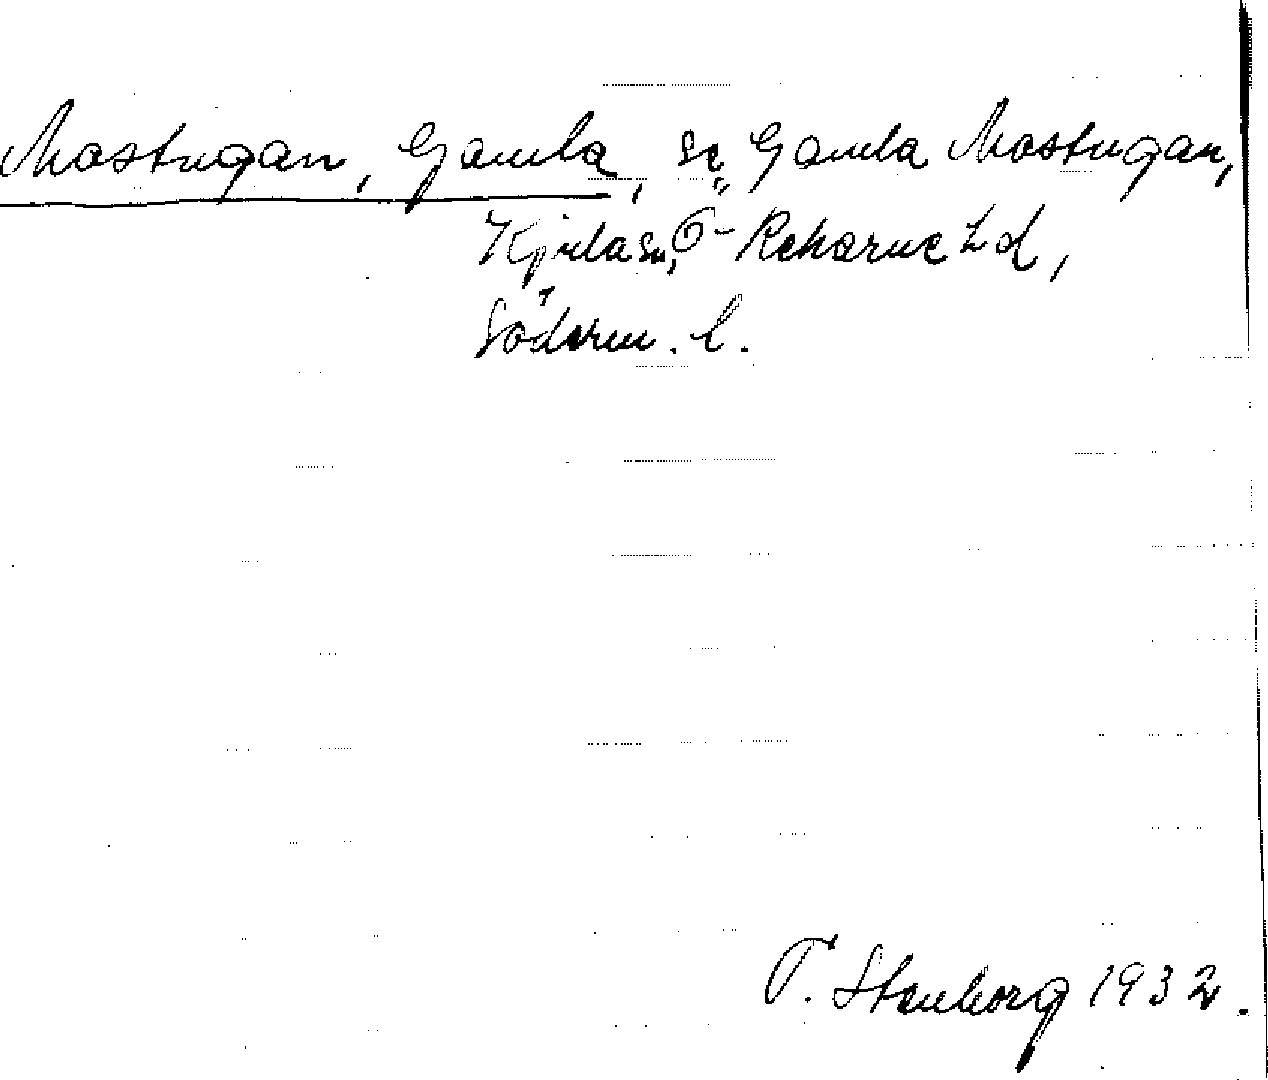 Mostugan, Gamla, se Gamla Mostugan,
Kjulasn, Ö-Rekarne hd,
Söderm. l.
T. Stenborg 1932.